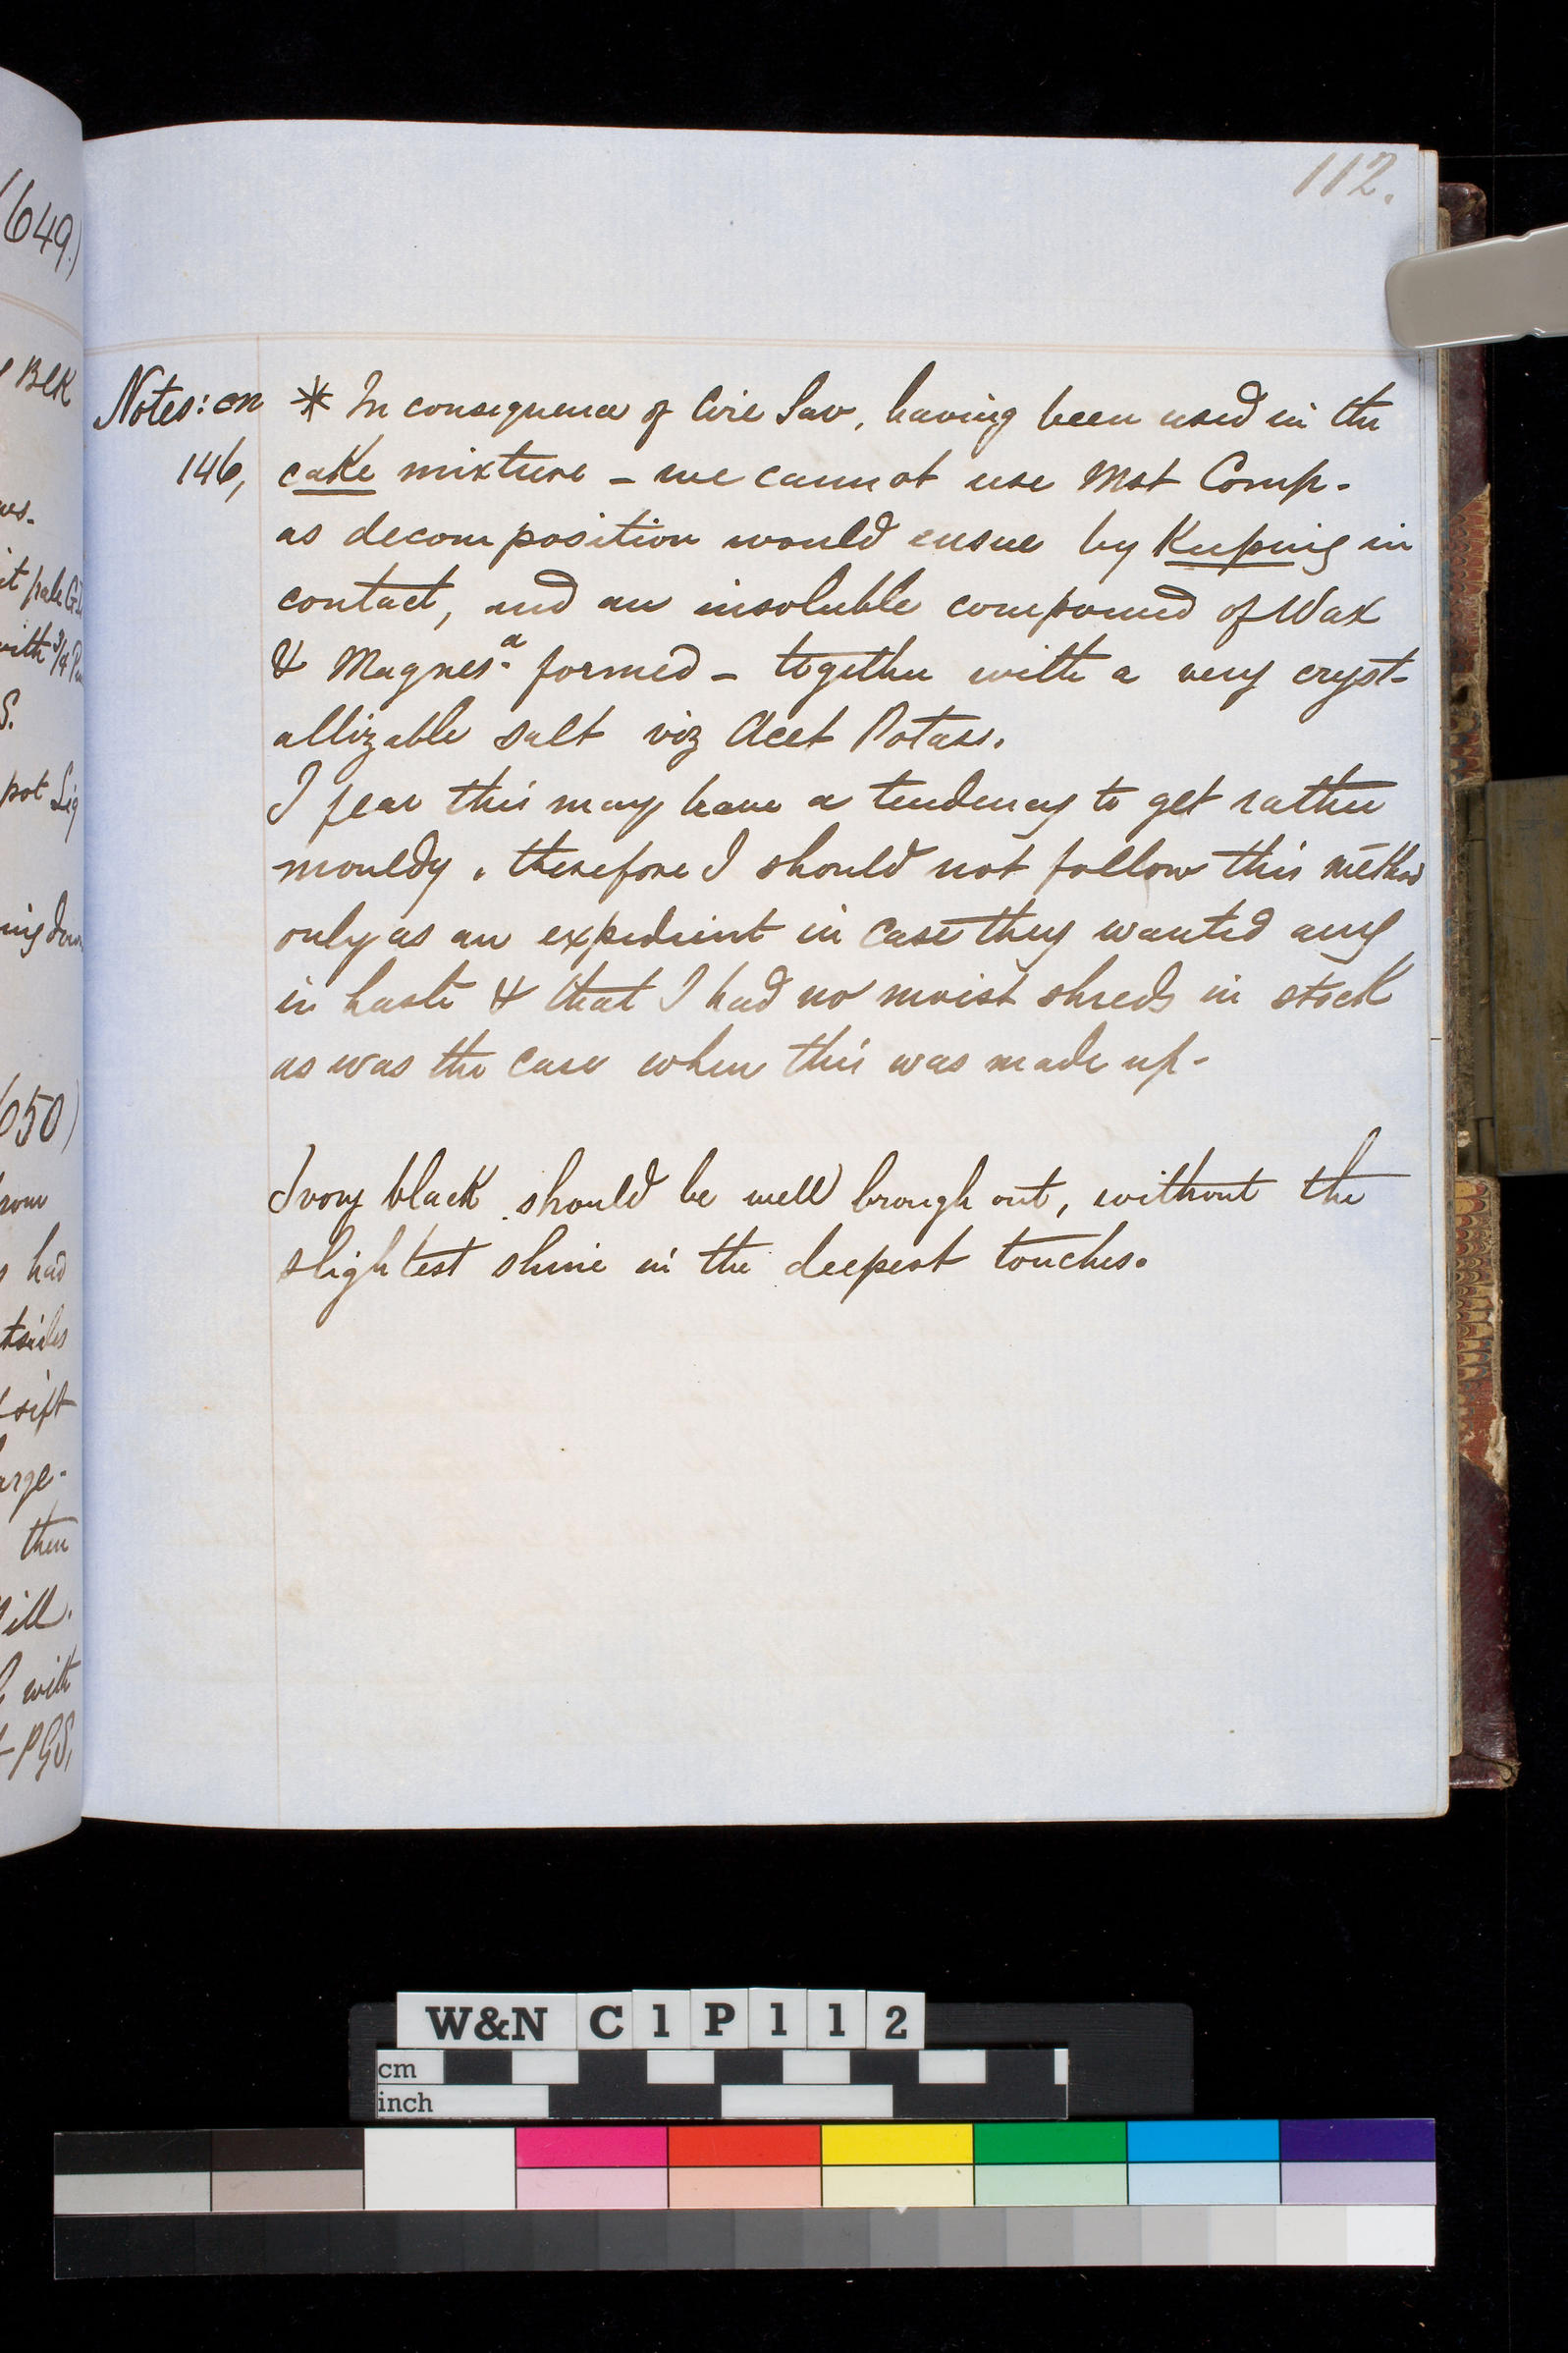 (649.)
BLK
ws.
it pale G
with 3/4 P
S.
pot Liq
ing down
650)
from
s had
tsides
sift
arge-
then
ill.
with
PGS,
112.
Notes: on
146,
* In consequence of Cire Sav, having been used in the
cake mixture - we cannot use Mst Comp-
as decomposition would ensue by Keeping in
contact, and an insoluble compound of Wax
& Magnes.a formed - together with a very cryst-
allizable salt viz Acet Potass.
I fear this may have a tendency to get rather
mouldy. therefore I should not follow this method
only as an expedient in case they wanted any
in haste & that I had no moist shreds in stock
as was the case when this was made up-
Ivory black should be well brough out, without the
slightest shine in the deepest touches.
W&N C1P112
cm
inch